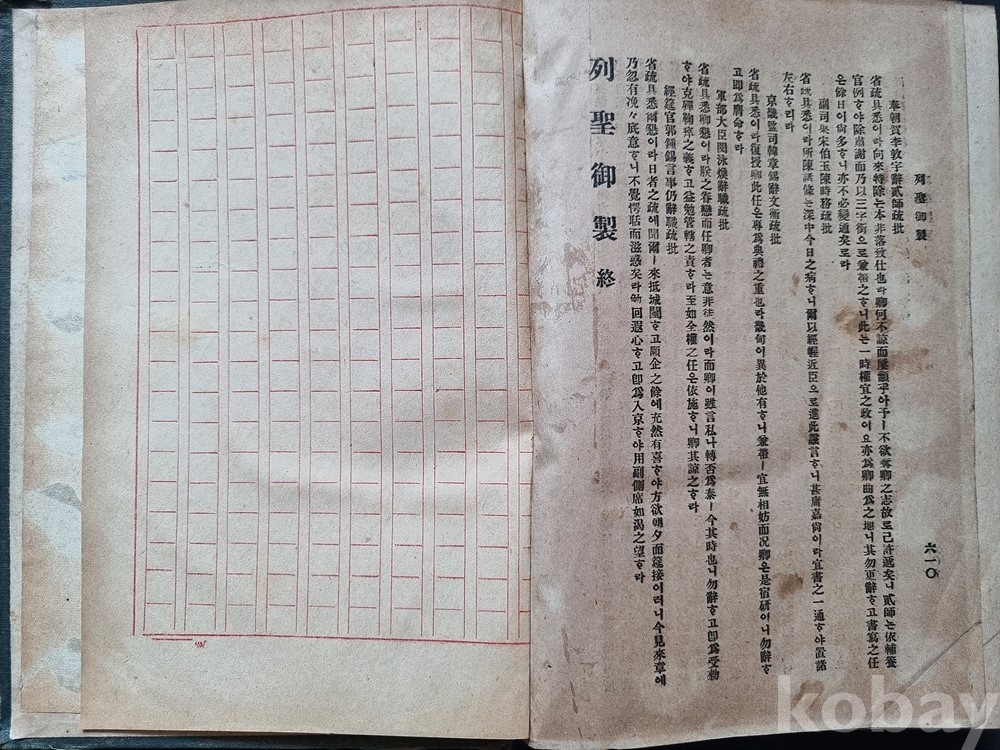 列聖御製
六一〇
奉朝賀李敦宇辭貳師疏批
省疏具悉이라向來特除는本非落致仕也라卿何不諒而屢顴乎아予ㅣ不欲奪卿之志故로已許遞矣니貳師는依輔養
官例ᄒᆞ야除肅謝而乃以三字銜으로兼帶之ᄒᆞ니此는一時權宜之政이오亦爲卿曲爲之地니其勿更辭ᄒᆞ고書寫之任
은餘日이尙多ᄒᆞ니亦不必變通矣로라
副司果宋伯玉陳時務疏批
省疏具悉이라所陳諸條는深中今日之病ᄒᆞ니爾以經幄近臣으로進此讜言ᄒᆞ니甚庸嘉尙이라宜書之一通ᄒᆞ야置諸
左右ᄒᆞ리라
京畿監司韓章錫辭文衡疏批
省疏具悉이라復授卿此任은專爲典禮之重也라畿甸이異於他有ᄒᆞ니兼帶ㅣ宜無相妨而况卿은是宿硏이니勿辭ᄒᆞ
고卽爲膺命ᄒᆞ라
軍部大臣閔泳煥辭職疏批
省疏具悉卿懇이라朕之眷戀而任卿者는意非徒然이라而卿이雖言私나轉否爲泰ㅣ今其時也니勿辭ᄒᆞ고卽爲受勅
ᄒᆞ야克殫鞠瘁之義ᄒᆞ고益勉管轄之責ᄒᆞ라至如全權之任은依施ᄒᆞ니卿其諒之ᄒᆞ라
經筵官郭鍾錫言事仍辭職疏批
省疏具悉爾懇이라日者之疏에聞爾ㅣ來抵城闉ᄒᆞ고顒企之餘에充然有喜ᄒᆞ야方欲朝夕而筵接이러니今見來章에
乃忽有浼々底意ᄒᆞ니不覺愕貽而滋惑矣라爾回遐心ᄒᆞ고卽爲入京ᄒᆞ야用副側席如渴之望ᄒᆞ라
列聖御製 終
kobay